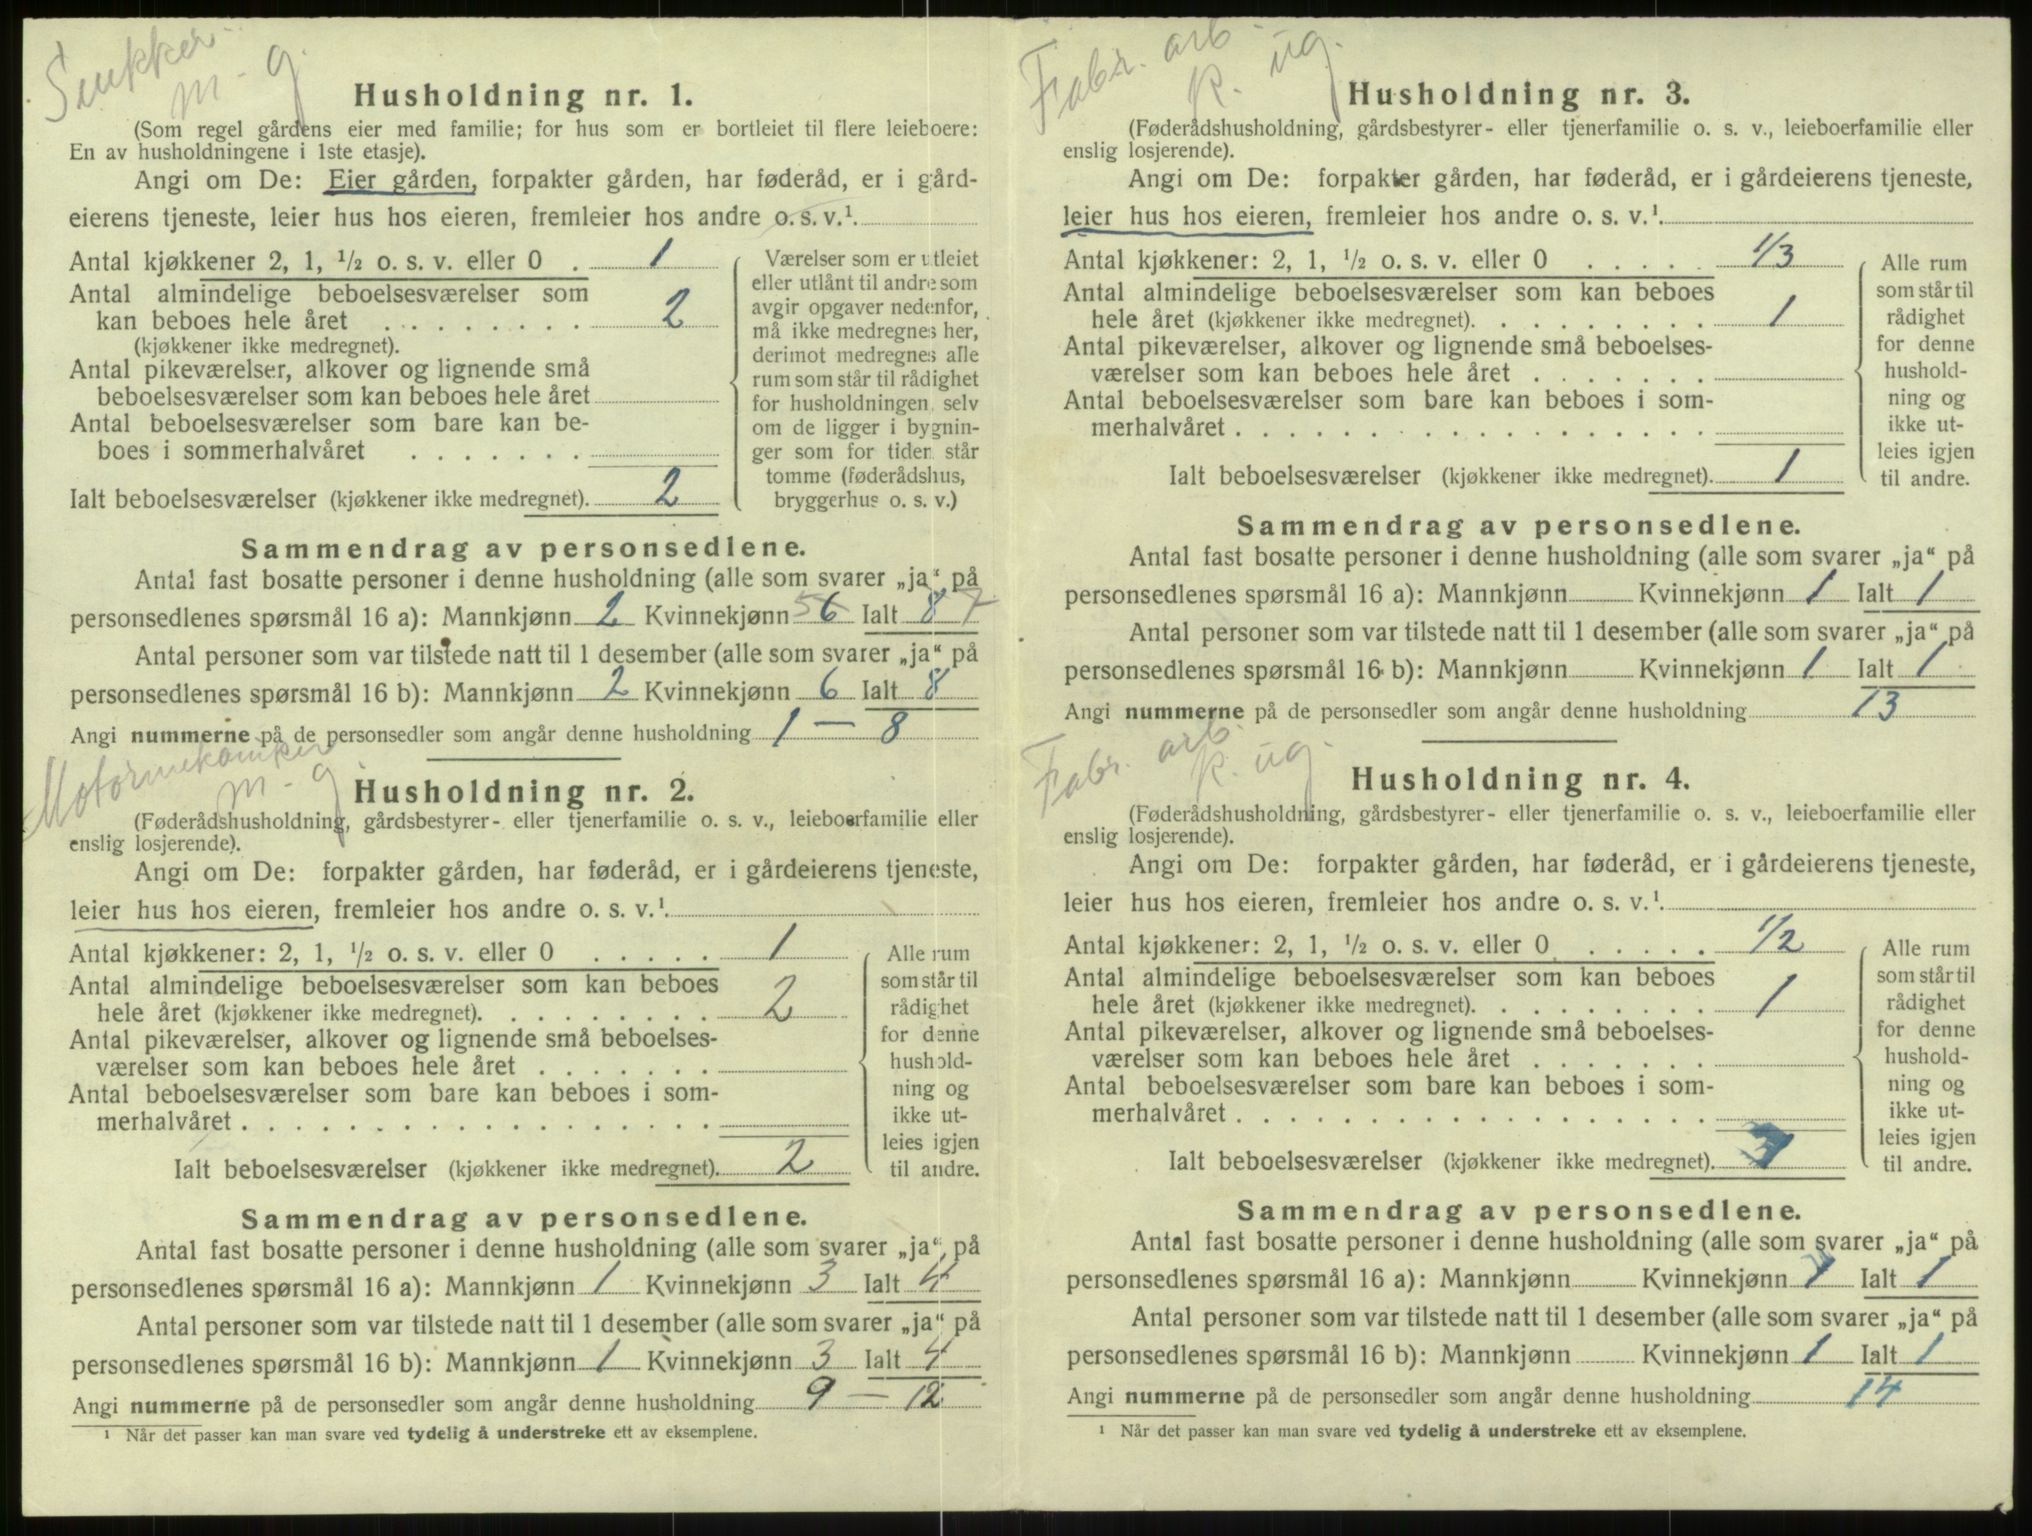 Snekker
m - g.
Husholdning nr. 1.
(Som regel gårdens eier med familie; for hus som er bortleiet til flere leieboere:
En av husholdningene i 1ste etasje).
Angi om De: Eier gården, forpakter gården, har føderåd, er i gård-
eierens tjeneste, leier hus hos eieren, fremleier hos andre o. s. v.¹
Antal kjøkkener 2, 1, ¹/2 o. s. v. eller 0 . 1
Antal almindelige beboelsesværelser som
kan beboes hele året . . . . . . . . 2
(kjøkkener ikke medregnet).
Antal pikeværelser, alkover og lignende små
beboelsesværelser som kan beboes hele året
Antal beboelsesværelser som bare kan be-
boes i sommerhalvåret . . . . . . .
Ialt beboelsesværelser (kjøkkener ikke medregnet). 2
Værelser som er utleiet
eller utlånt til andre som
avgir opgaver nedenfor,
må ikke medregnes her,
derimot medregnes alle
rum som står til rådighet
for husholdningen selv
om de ligger i bygnin-
ger som for tiden står
tomme (føderådshus,
bryggerhus o. s. v.)
Sammendrag av personsedlene.
Antal fast bosatte personer i denne husholdning (alle som svarer „ja“ på
personsedlenes spørsmål 16 a): Mannkjønn 2 Kvinnekjønn 5 6 Ialt 8 7
Antal personer som var tilstede natt til 1 desember (alle som svarer „ja“ på
personsedlenes spørsmål 16 b): Mannkjønn 2 Kvinnekjønn 6 Ialt 8
Angi nummerne på de personsedler som angår denne husholdning 1 — 8
Motormekaniker
m - g.
Husholdning nr. 2.
(Føderådshusholdning, gårdsbestyrer- eller tjenerfamilie o. s. v., leieboerfamilie eller
enslig losjerende).
Angi om De: forpakter gården, har føderåd, er i gårdeierens tjeneste,
leier hus hos eieren, fremleier hos andre o. s. v.¹
Antal kjøkkener: 2, 1, ¹/2 o. s. v. eller 0 . . . . . 1
Antal almindelige beboelsesværelser som kan beboes
hele året (kjøkkener ikke medregnet). . . . . . . . . 2
Antal pikeværelser, alkover og lignende små beboelses-
værelser som kan beboes hele året . . . . . . .
Antal beboelsesværelser som bare kan beboes i som-
merhalvåret . . . . . . . . . . . . . . . . . .
Ialt beboelsesværelser (kjøkkener ikke medregnet). 2
Alle rum
som står til
rådighet
for denne
hushold-
ning og
ikke ut-
leies igjen
til andre.
Sammendrag av personsedlene.
Antal fast bosatte personer i denne husholdning (alle som svarer „ja“ på
personsedlenes spørsmål 16 a): Mannkjønn 1 Kvinnekjønn 3 Ialt 4
Antal personer som var tilstede natt til 1 desember (alle som svarer „ja“ på
personsedlenes spørsmål 16 b): Mannkjønn 1 Kvinnekjønn 3 Ialt 4
Angi nummerne på de personsedler som angår denne husholdning 9 — 12
¹ Når det passer kan man svare ved tydelig å understreke ett av eksemplene.
Fabr. arb.
k. ug.
Husholdning nr. 3.
(Føderådshusholdning, gårdsbestyrer- eller tjenerfamilie o. s. v., leieboerfamilie eller
enslig losjerende).
Angi om De: forpakter gården, har føderåd, er i gårdeierens tjeneste,
leier hus hos eieren, fremleier hos andre o. s. v.¹
Antal kjøkkener: 2, 1, ¹/2 o. s. v. eller 0 . . . . . 1/3
Antal almindelige beboelsesværelser som kan beboes
hele året (kjøkkener ikke medregnet). . . . . . . . . 1
Antal pikeværelser, alkover og lignende små beboelses-
værelser som kan beboes hele året . . . . . . .
Antal beboelsesværelser som bare kan beboes i som-
merhalvåret . . . . . . . . . . . . . . . . . .
Ialt beboelsesværelser (kjøkkener ikke medregnet). 1
Alle rum
som står til
rådighet
for denne
hushold-
ning og
ikke ut-
leies igjen
til andre.
Sammendrag av personsedlene.
Antal fast bosatte personer i denne husholdning (alle som svarer „ja“ på
personsedlenes spørsmål 16 a): Mannkjønn Kvinnekjønn 1 Ialt 1
Antal personer som var tilstede natt til 1 desember (alle som svarer „ja“ på
personsedlenes spørsmål 16 b): Mannkjønn Kvinnekjønn 1 Ialt 1
Angi nummerne på de personsedler som angår denne husholdning 13
Fabr. arb.
k. ug.
Husholdning nr. 4.
(Føderådshusholdning, gårdsbestyrer- eller tjenerfamilie o. s. v., leieboerfamilie eller
enslig losjerende).
Angi om De: forpakter gården, har føderåd, er i gårdeierens tjeneste,
leier hus hos eieren, fremleier hos andre o. s. v.¹
Antal kjøkkener: 2, 1, ¹/2 o. s. v. eller 0 . . . . . 1/2
Antal almindelige beboelsesværelser som kan beboes
hele året (kjøkkener ikke medregnet). . . . . . . . . 1
Antal pikeværelser, alkover og lignende små beboelses-
værelser som kan beboes hele året . . . . . . .
Antal beboelsesværelser som bare kan beboes i som-
merhalvåret . . . . . . . . . . . . . . . . . .
Ialt beboelsesværelser (kjøkkener ikke medregnet).
Alle rum
som står til
rådighet
for denne
hushold-
ning og
ikke ut-
leies igjen
til andre.
Sammendrag av personsedlene.
Antal fast bosatte personer i denne husholdning (alle som svarer „ja“ på
personsedlenes spørsmål 16 a): Mannkjønn Kvinnekjønn 1 Ialt 1
Antal personer som var tilstede natt til 1 desember (alle som svarer „ja“ på
personsedlenes spørsmål 16 b): Mannkjønn Kvinnekjønn 1 Ialt 1
Angi nummerne på de personsedler som angår denne husholdning 14
¹ Når det passer kan man svare ved tydelig å understreke ett av eksemplene.